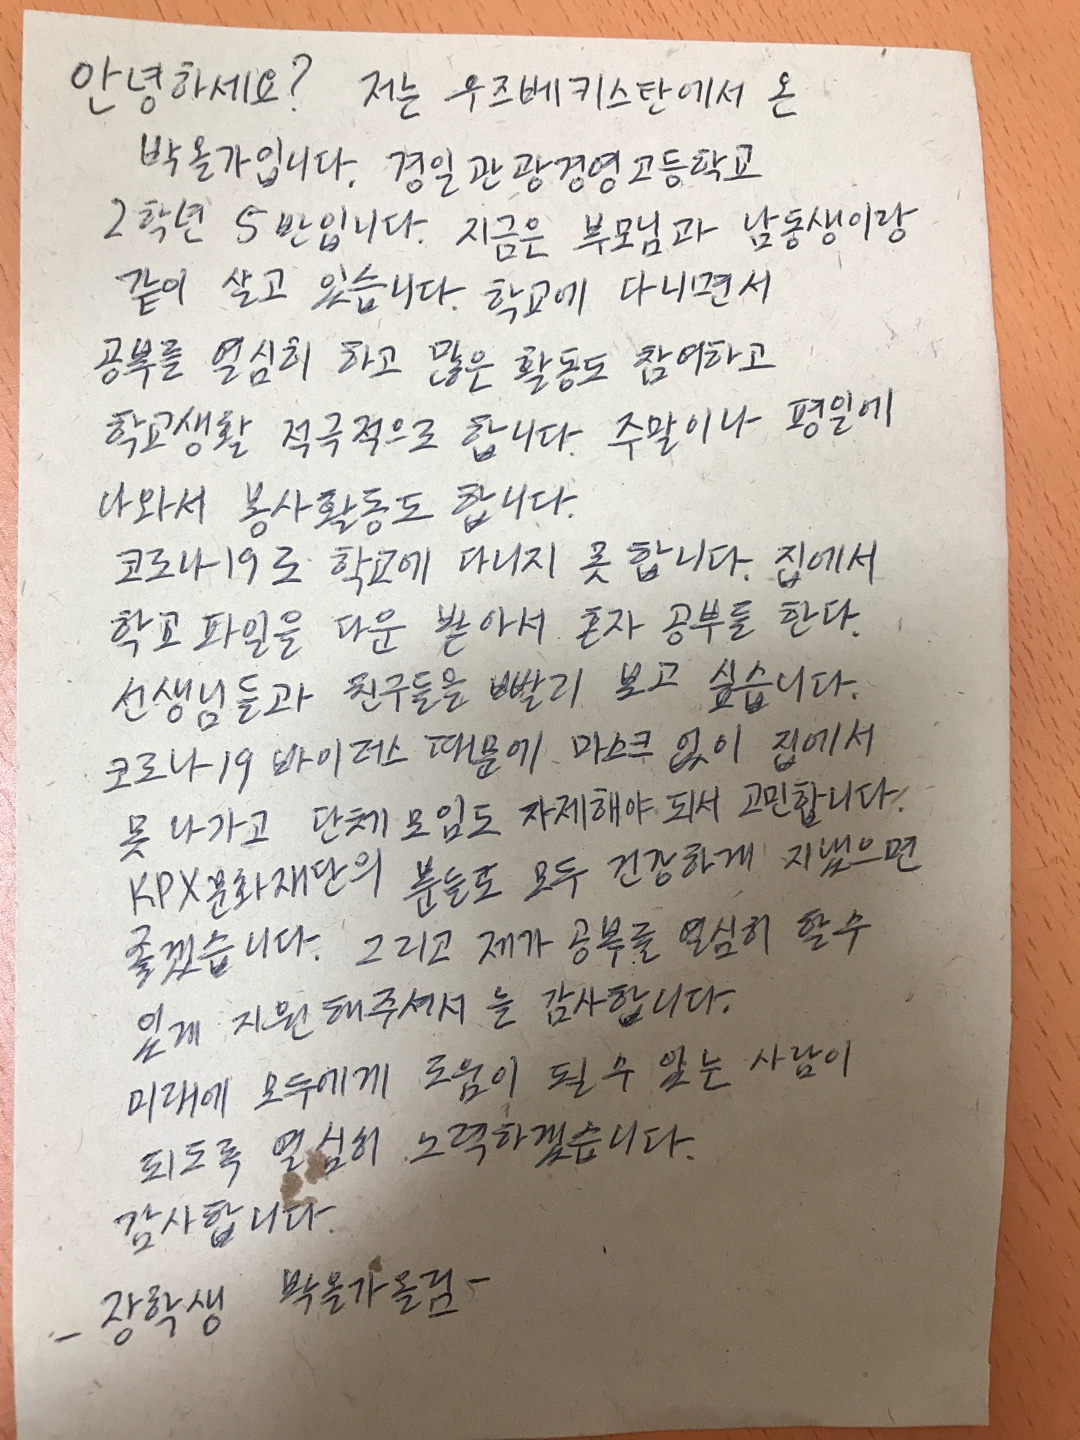 안녕하세요? 저는 우즈베키스탄에서 온
박올가입니다. 경일관광경영고등학교
2학년 5반입니다. 지금은 부모님과 남동생이랑
같이 살고 있습니다. 학교에 다니면서
공부를 열심히 하고 많은 활동도 참여하고
학교생활 적극적으로 합니다. 주말이나 평일에
나와서 봉사활동도 합니다.
코로나19로 학교에 다니지 못 합니다. 집에서
학교 파일을 다운 받아서 혼자 공부를 한다.
선생님들과 친구들을 빨리 보고 싶습니다.
코로나19 바이러스 때문에 마스크 없이 집에서
못 나가고 단체 모임도 자제해야 되서 고민합니다.
KPX문화재단의 분들도 모두 건강하게 지냈으면
좋겠습니다. 그리고 제가 공부를 열심히 할수
있게 지원해주셔서 늘 감사합니다.
미래에 모두에게 도움이 될 수 있는 사람이
되도록 열심히 노력하겠습니다.
감사합니다.
- 장학생 박올가올림-